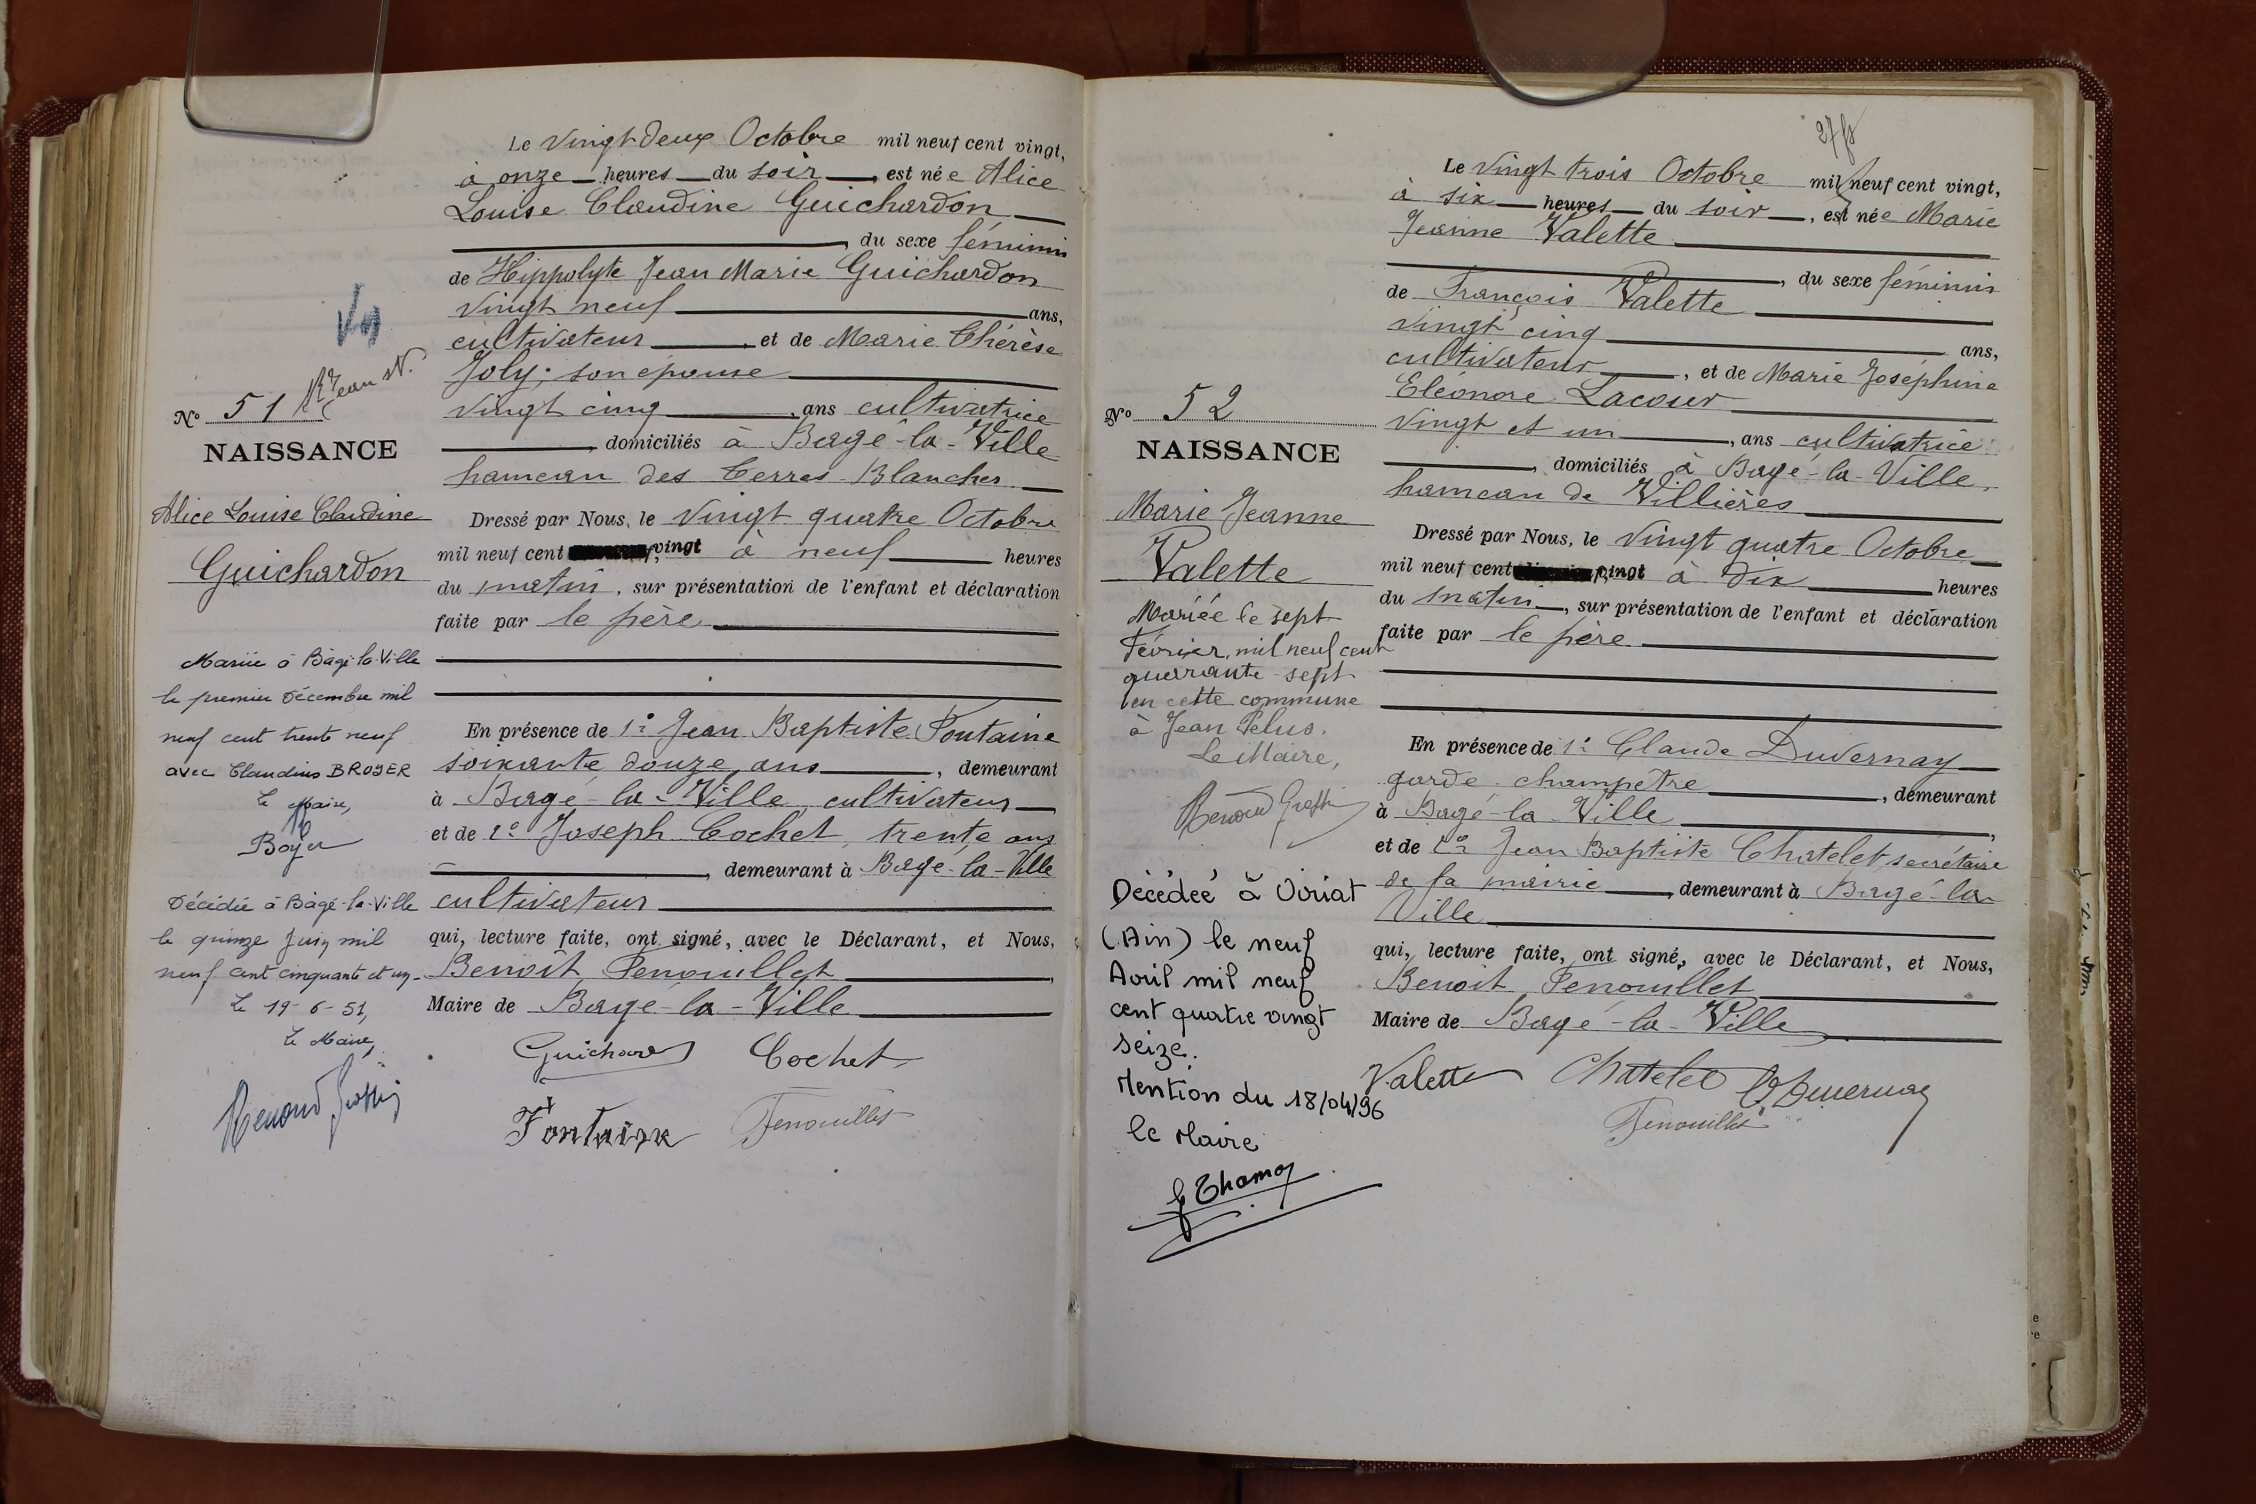 Le Vingt deux Octobre mil neuf cent vingt,
à onze heures du soir, est née Alice
Louise Claudine Guichardon
, du sexe féminin
de Hippolyte Jean Marie Guichardon
vingt neuf ans,
cultivateur, et de Marie Thérèse
Joly, son épouse
vingt cinq, ans cultivatrice
, domiciliés à Bagé-la-Ville
hameau des Terres Blanches
Dressé par Nous, le Vingt quatre Octobre
mil neuf cent vingt à neuf heures
du matin, sur présentation de l'enfant et déclaration
faite par le père
En présence de 1° Jean Baptiste Fontaine
soixante douze ans, demeurant
à Bagé-la-Ville, cultivateur
et de 2° Joseph Cochet, trente ans
, demeurant à Bagé-la-Ville
cultivateur
qui, lecture faite, ont signé, avec le Déclarant, et Nous,
Benoît Fenouillet,
Maire de Bagé-la-Ville
Guichard Cochet
Fontaine Fenouillet
N° 51
NAISSANCE
Alice Louise Claudine
Guichardon
Mariée à Bâgé-la-Ville
le premier Décembre mil
neuf cent trente neuf
avec Claudius BROYER
Le Maire,
Boyer
Décédée à Bâgé-la-Ville
le quinze Juin mil
neuf cent cinquante et un
Le 19-6-51,
Le Maire,
Renoud
27
Le Vingt trois Octobre mil neuf cent vingt,
à six heures du soir, est née Marie
Jeanne Valette
, du sexe féminin
de François Valette
vingt cinq ans,
cultivateur, et de Marie Joséphine
Eléonore Lacour
vingt et un, ans cultivatrice
, domiciliés à Bagé-la-Ville,
hameau de Villières
Dressé par Nous, le Vingt quatre Octobre
mil neuf cent vingt à dix heures
du matin, sur présentation de l'enfant et déclaration
faite par le père
En présence de 1° Claude Duvernay
garde champêtre, demeurant
à Bagé-la-Ville,
et de 2° Jean Baptiste Chatelet secrétaire
de la mairie, demeurant à Bagé-la-
Ville
qui, lecture faite, ont signé, avec le Déclarant, et Nous,
Benoit Fenouillet
Maire de Bagé-la-Ville
Valette Chatelet Duvernay
Fenouillet
N° 52
NAISSANCE
Marie Jeanne
Valette
Mariée le sept
Février, mil neuf cent
quarante-sept
en cette commune
à Jean Pelus.
Le Maire,
Renoud
Décédée à Viriat
(Ain) le neuf
Avril mil neuf
cent quatre vingt
seize.
Mention du 18/04/96
le Maire